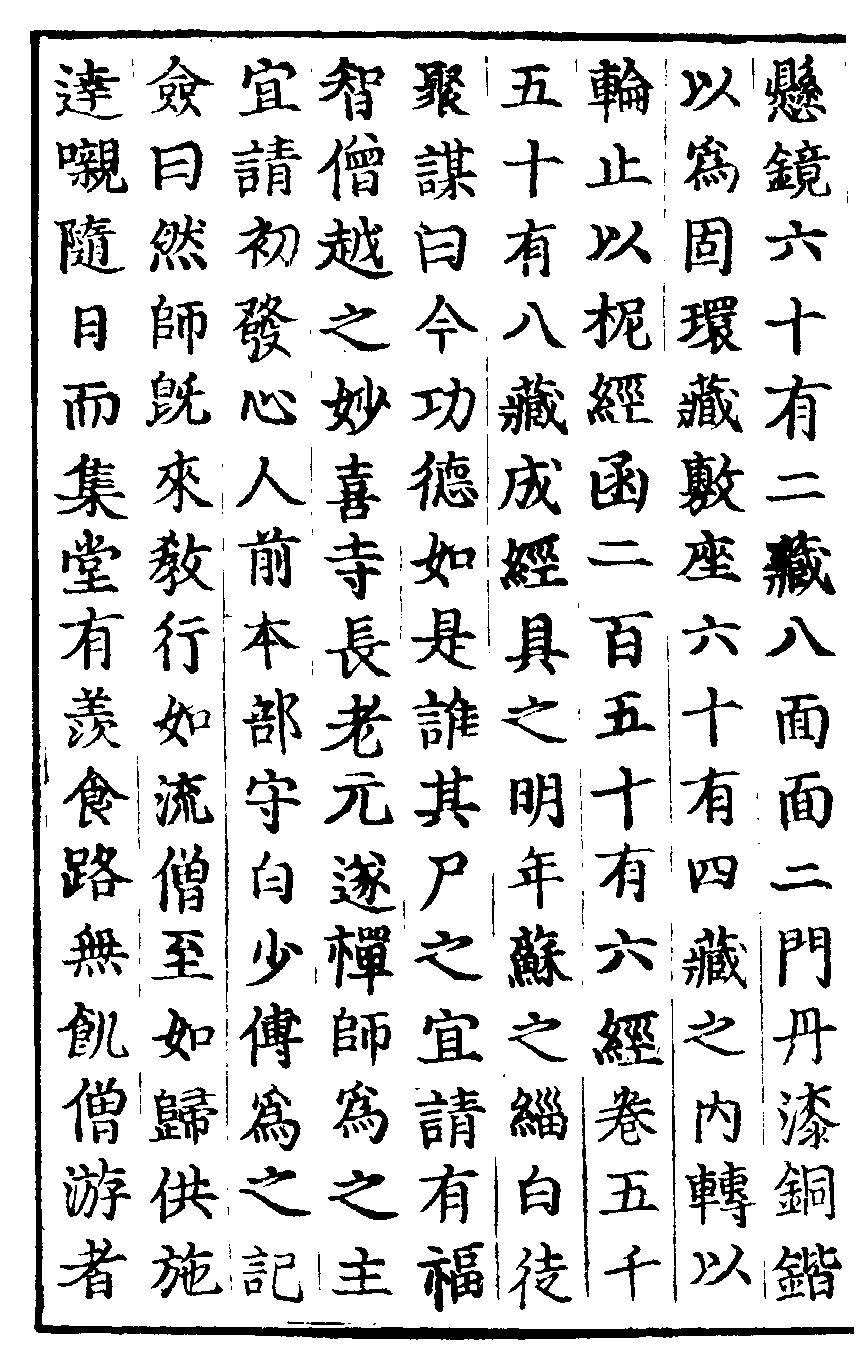 懸鏡六十有二藏八面面二門丹漆銅鍇
以爲固環藏敷座六十有四藏之内轉以
輪止以柅經函二百五十有六經卷五千
五十有八藏成經具之明年蘇之緇白徒
聚謀曰今功德如是誰其尸之宜請有福
智僧越之妙喜寺長老元遂禪師爲之主
宜請初發心人前本部守白少傅爲之記
僉曰然師旣來教行如流僧至如歸供施
達嚫隨日而集堂有羨食路無飢僧游者